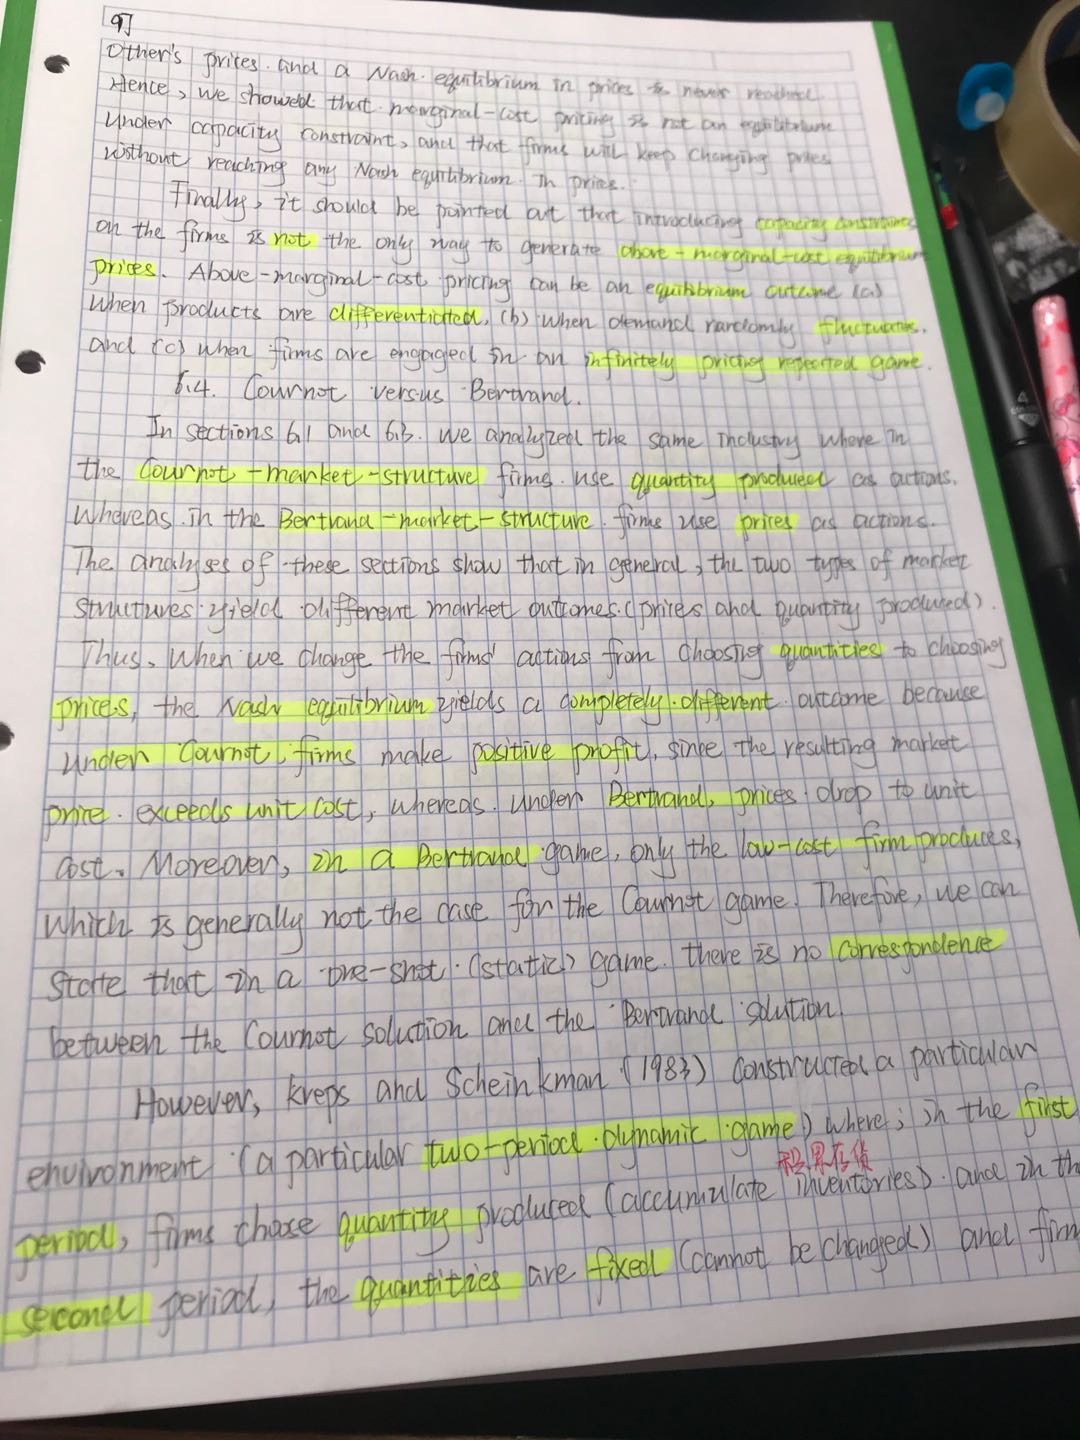 97
Other's prices. and a Nash equilibrium in prices is never reached.
Hence, we showed that marginal-cost pricing is not an equilibrium
under capacity constraint, and that firms will keep changing prices
without reaching any Nash equilibrium in prices.
Finally, it should be pointed out that introducing capacity constraints
on the firms is not the only way to generate above-marginal-cost equilibrium
prices. Above-marginal-cost pricing can be an equilibrium outcome (a)
when products are differentiated, (b) when demand randomly fluctuates.
and (c) when firms are engaged in an infinitely pricing repeated game.
6.4. Cournot versus Bertrand.
In sections 6.1 and 6.3. we analyzed the same industry where in
the Cournot-market-structure firms use quantity produced as actions.
Whereas in the Bertrand-market-structure. firms use prices as actions.
The analyses of these sections show that in general, the two types of market
structures yield different market outcomes. (prices and quantity produced).
Thus, when we change the firms' actions from choosing quantities to choosing
prices, the Nash equilibrium yields a completely different outcome because
under Cournot, firms make positive profit, since the resulting market
price exceeds unit cost, whereas under Bertrand, prices drop to unit
cost. Moreover, in a Bertrand game, only the low-cost firm produces,
which is generally not the case for the Cournot game. Therefore, we can
state that in a one-shot (static) game. there is no correspondence
between the Cournot solution and the Bertrand solution.
However, kreps and Scheinkman (1983) constructed a particular
environment (a particular two-period dynamic game) where; in the first
积累存货
period, firms choose quantity produced (accumulate inventories). and in the
second period, the quantities are fixed (cannot be changed) and firm